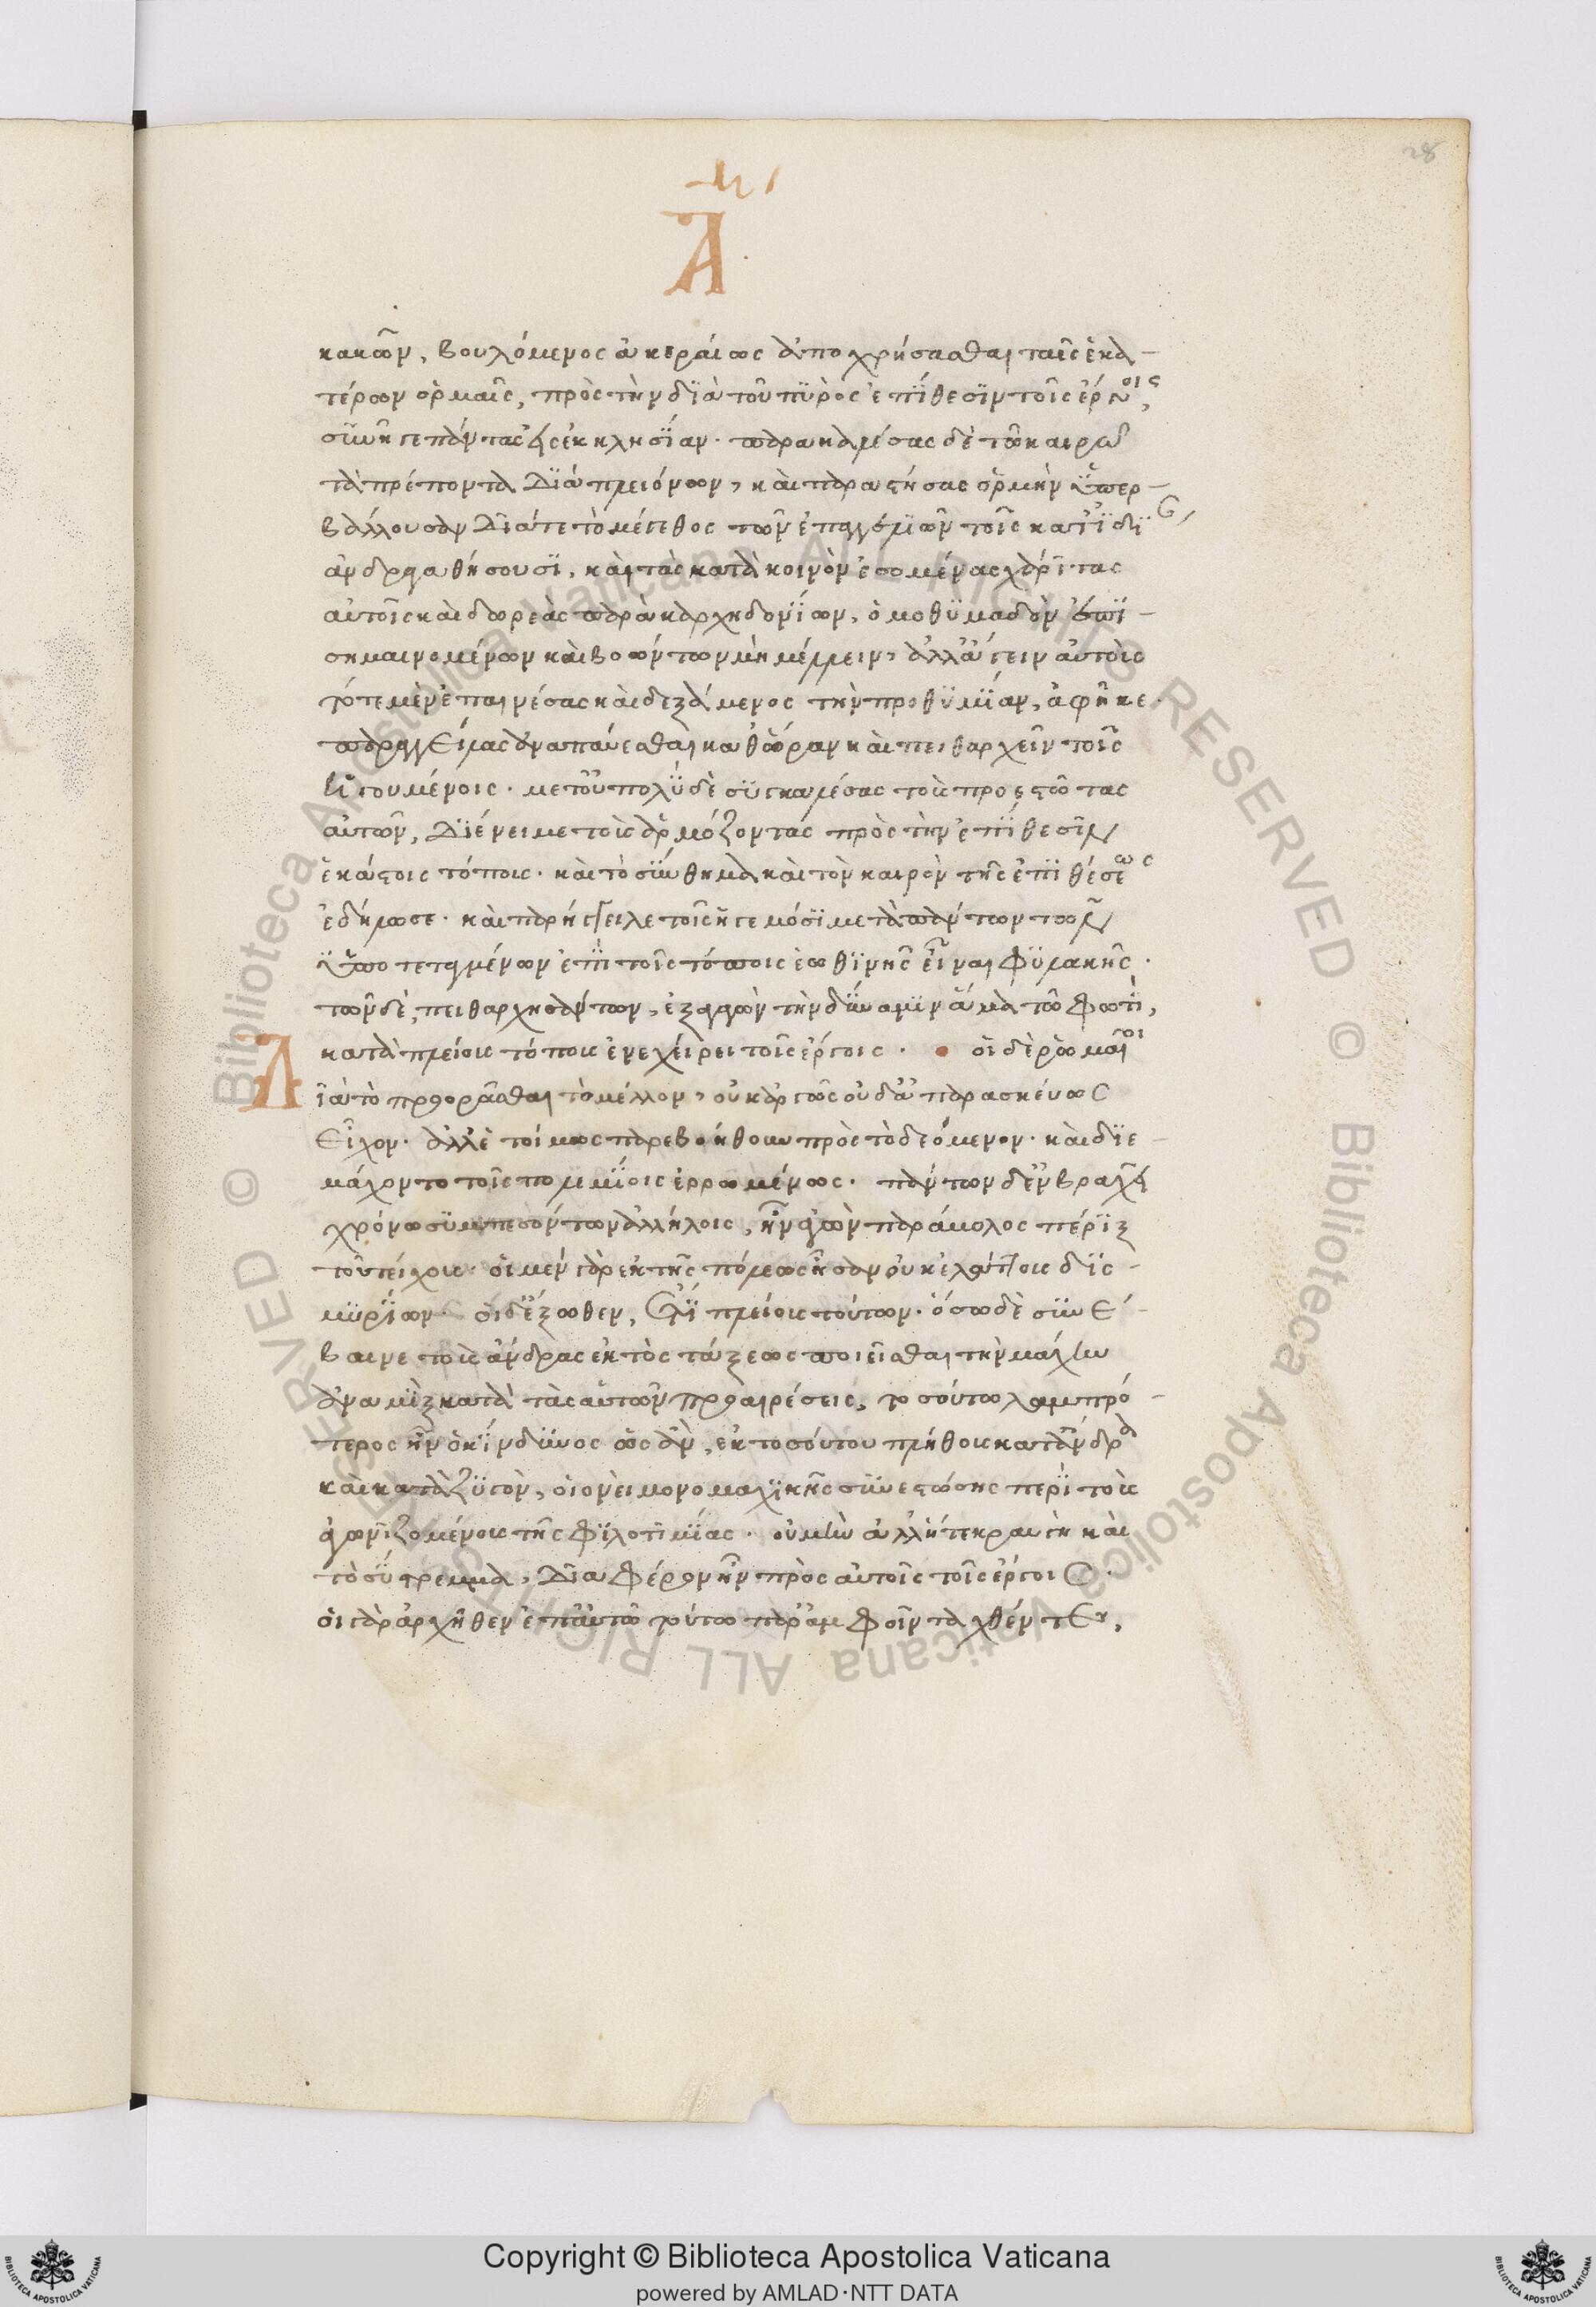 28
Α
κακῶν, βουλόμενος ἀκεραίως ἀποχρήσασθαι ταῖς ἑκα-
τέρων ὁρμαῖς, πρὸς τὴν διὰ τοῦ πυρὸς ἐπίθεσιν τοῖς ἔργοις,
συνῆγε πάντας εἰς ἐκκλησίαν. παρακαλέσας δὲ τῶ καιρῶ
τὰ πρέποντα διὰ πλειόνων, καὶ παραστήσας ὁρμὴν ὑπερ-
βάλλουσαν διά τε τὸ μέγεθος τῶν ἐπαγγελιῶν τοῖς κατ' ἰδίαν
ἀνδραγαθήσουσι, καὶ τὰς κατὰ κοινὸν ἐσομένας χάριτας
αὐτοῖς καὶ δωρεὰς παρὰ καρχηδονίων, ὁμοθυμαδὸν ἐπι-
σημαινομένων καὶ βοώντων μὴ μέλλειν, ἀλλ' ἄγειν αὐτοὺς
τότε μὲν ἐπαινέσας καὶ δεξάμενος τὴν προθυμίαν, ἀφῆκε.
παραγγείλας ἀναπαύεσθαι καθ' ὥραν καὶ πειθαρχεῖν τοῖς
ἡγουμένοις. μετ' οὐ πολὺ δὲ συγκαλέσας τοὺς προεστῶτας
αὐτῶν, διένειμε τοὺς ἁρμόζοντας πρὸς τὴν ἐπίθεσιν
ἑκάστοις τόπους. καὶ τὸ σύνθημα καὶ τὸν καιρὸν τῆς ἐπιθέσεως
ἐδήλωσε. καὶ παρήγγειλε τοῖς ἡγεμόσι μετὰ πάντων τῶν
ὑποτεταγμένων ἐπὶ τοῖς τόποις ἑωθινῆς εἶναι φυλακῆς.
τῶν δὲ, πειθαρχησάντων, ἐξαγαγὼν τὴν δύναμιν ἅμα τῶ φωτὶ,
κατὰ πλείους τόπους ἐνεχείρει τοῖς ἔργοις. οἱ δὲ ῥωμαῖοι
Διὰ τὸ προορᾶσθαι τὸ μέλλον, οὐκ ἀργῶς οὐδ' ἀπαρασκεύως
εἶχον. ἀλλ' ἑτοίμως παρεβοήθουν πρὸς τὸ δεόμενον. καὶ διε-
μάχοντο τοῖς πολεμίοις ἐρρωμένως. πάντων δ' ἐν βραχεῖ
χρόνω συμπεσόντων ἀλλήλοις, ἦν ἀγὼν παράμολος πέριξ
τοῦ τείχους. οἱ μὲν γὰρ ἐκ τῆς πόλεως ἦσαν οὐκ ἐλάττους δισ-
μυρίων. οἱ δ' ἔξωθεν, ἔτι πλείους τούτων. ὅσω δὲ συνέ-
βαινε τοὺς ἄνδρας ἐκτὸς τάξεως ποιεῖσθαι τὴν μάχην
ἀναμὶξ κατὰ τὰς αὑτῶν προαιρέσεις, τοσούτω λαμπρό-
τερος ἦν ὁ κίνδυνος ὡς ἂν, ἐκ τοσούτου πλήθους κατ' ἄνδρα
καὶ κατὰ ζυγὸν, οἱονεὶ μονομαχικῆς συνεστώσης περὶ τοὺς
ἀγωνιζομένους τῆς φιλοτιμίας. οὐ μὴν ἀλλ' ἥ τε κραυγὴ καὶ
τὸ σύστρεμμα, διαφέρον ἦν πρὸς αὐτοῖς τοῖς ἔργοις.
οἱ γὰρ ἀρχῆθεν ἐπ' αὐτῶ τούτω παρ' ἀμφοῖν ταχθέντες,
Copyright © Biblioteca Apostolica Vaticana
powered by AMLAD·NTT DATA
© Biblioteca Apostolica Vaticana ALL RIGHTS RESERVED © Biblioteca Apostolica Vaticana ALL RIGHTS RESERVED